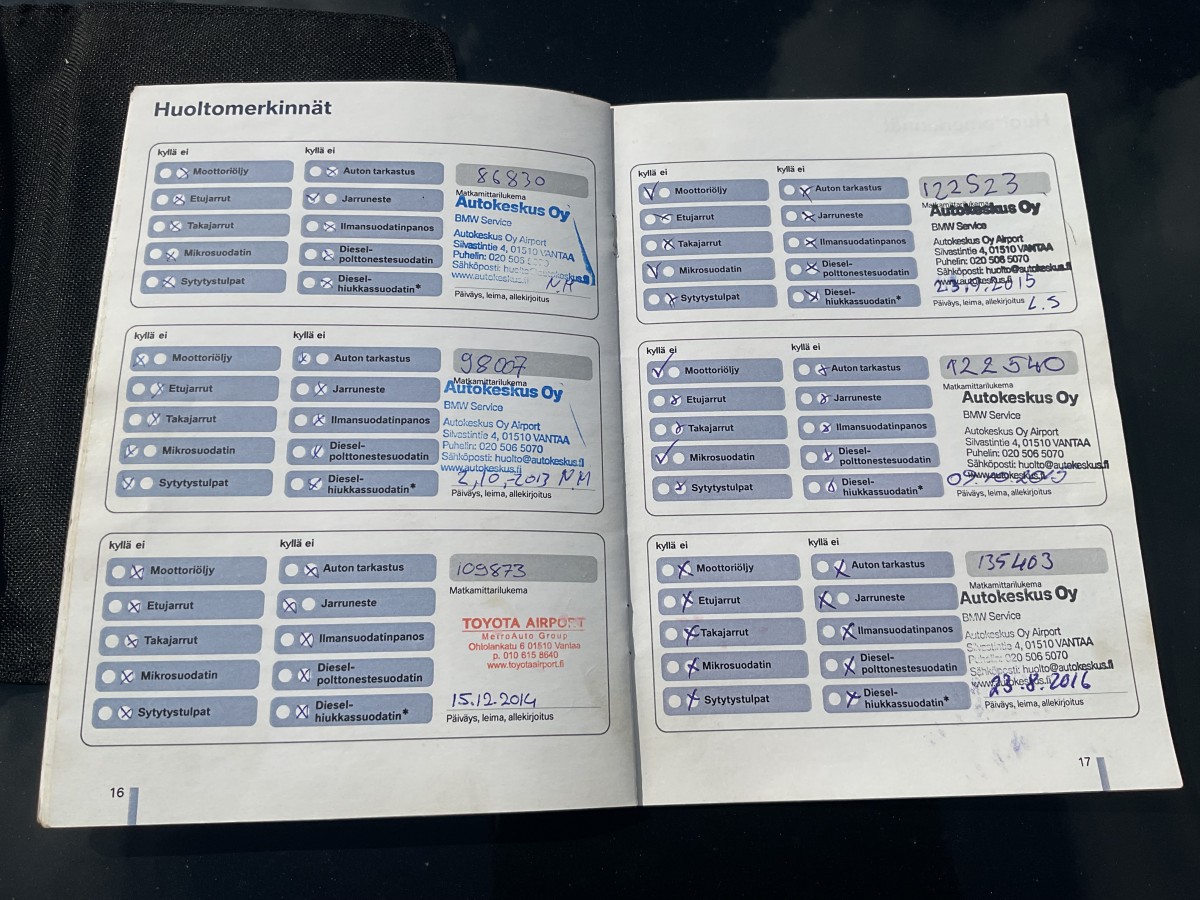 Huoltomerkinnät
kyllä ei
kyllä ei
Moottoriöljy
Auton tarkastus
86830
Etujarrut
Jarruneste
Matkamittarilukema
Autokeskus Oy
Takajarrut
Ilmansuodatinpanos
BMW Service
Mikrosuodatin
Diesel-
polttonestesuodatin
Autokeskus Oy Airport
Silvastintie 4, 01510 VANTAA
Puhelin: 020 505
Sytytystulpat
Diesel-
hiukkassuodatin*
Sähköposti:
NM
Päiväys, leima, allekirjoitus
kyllä ei
kyllä ei
Moottoriöljy
Auton tarkastus
98007
Etujarrut
Jarruneste
Matkamittarilukema
Autokeskus Oy
Takajarrut
Ilmansuodatinpanos
BMW Service
Mikrosuodatin
Diesel-
polttonestesuodatin
Autokeskus Oy Airport
Silvastintie 4, 01510 VANTAA
Puhelin: 020 506 5070
Sähköposti: huolto@autokeskus.fi
www.autokeskus.fi
Sytytystulpat
Diesel-
hiukkassuodatin*
2,10,-2013 NM
Päiväys, leima, allekirjoitus
kyllä ei
kyllä ei
Moottoriöljy
Auton tarkastus
109873
Matkamittarilukema
Etujarrut
Jarruneste
TOYOTA AIRPORT
MetroAuto Group
Ohtolankatu 6 01510 Vantaa
p. 010 615 8640
www.toyotaairport.fi
Takajarrut
Ilmansuodatinpanos
Mikrosuodatin
Diesel-
polttonestesuodatin
Sytytystulpat
Diesel-
hiukkassuodatin*
15.12.2014
Päiväys, leima, allekirjoitus
16
kyllä ei
kyllä ei
Moottoriöljy
Auton tarkastus
122523
Etujarrut
Jarruneste
Autokeskus Oy
BMW Service
Takajarrut
Ilmansuodatinpanos
Mikrosuodatin
Diesel-
polttonestesuodatin
Autokeskus Oy Airport
Silvastintie 4, 01510 VANTAA
Puhelin: 020 506 5070
Sähköposti: huolto@autokeskus.fi
www.autokeskus.fi
Sytytystulpat
Diesel-
hiukkassuodatin*
Päiväys, leima, allekirjoitus
L.S
kyllä ei
kyllä ei
Moottoriöljy
Auton tarkastus
122540
Matkamittarilukema
Etujarrut
Jarruneste
Autokeskus Oy
BMW Service
Takajarrut
Ilmansuodatinpanos
Mikrosuodatin
Diesel-
polttonestesuodatin
Autokeskus Oy Airport
Silvastintie 4, 01510 VANTAA
Puhelin: 020 506 5070
Sähköposti: huolto@autokeskus.fi
www.autokeskus.fi
Sytytystulpat
Diesel-
hiukkassuodatin*
Päiväys, leima, allekirjoitus
kyllä ei
kyllä ei
Moottoriöljy
Auton tarkastus
135403
Matkamittarilukema
Etujarrut
Jarruneste
Autokeskus Oy
BMW Service
Takajarrut
Ilmansuodatinpanos
Mikrosuodatin
Diesel-
polttonestesuodatin
Autokeskus Oy Airport
Silvastintie 4, 01510 VANTAA
Puhelin: 020 506 5070
Sähköposti: huolto@autokeskus.fi
www.autokeskus.fi
Sytytystulpat
Diesel-
hiukkassuodatin*
23.8.2016
Päiväys, leima, allekirjoitus
17